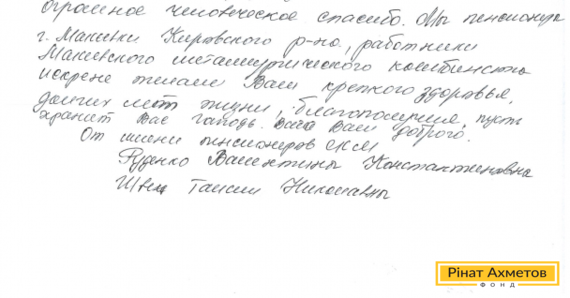 огромное человеческое спасибо. Мы пенсионеры
г. Макеевки Кировского р-на, работники
Макеевского металлургического комбината
искрене желаем Вам крепкого здоровья,
долгих лет жизни, благополучия, пусть
хранит Вас господь. Всего Вам доброго.
От имени пенсионеров
Руденко Валентины Константиновна
Швец Таисии Николаевны
Рінат Ахметов
ФОНД